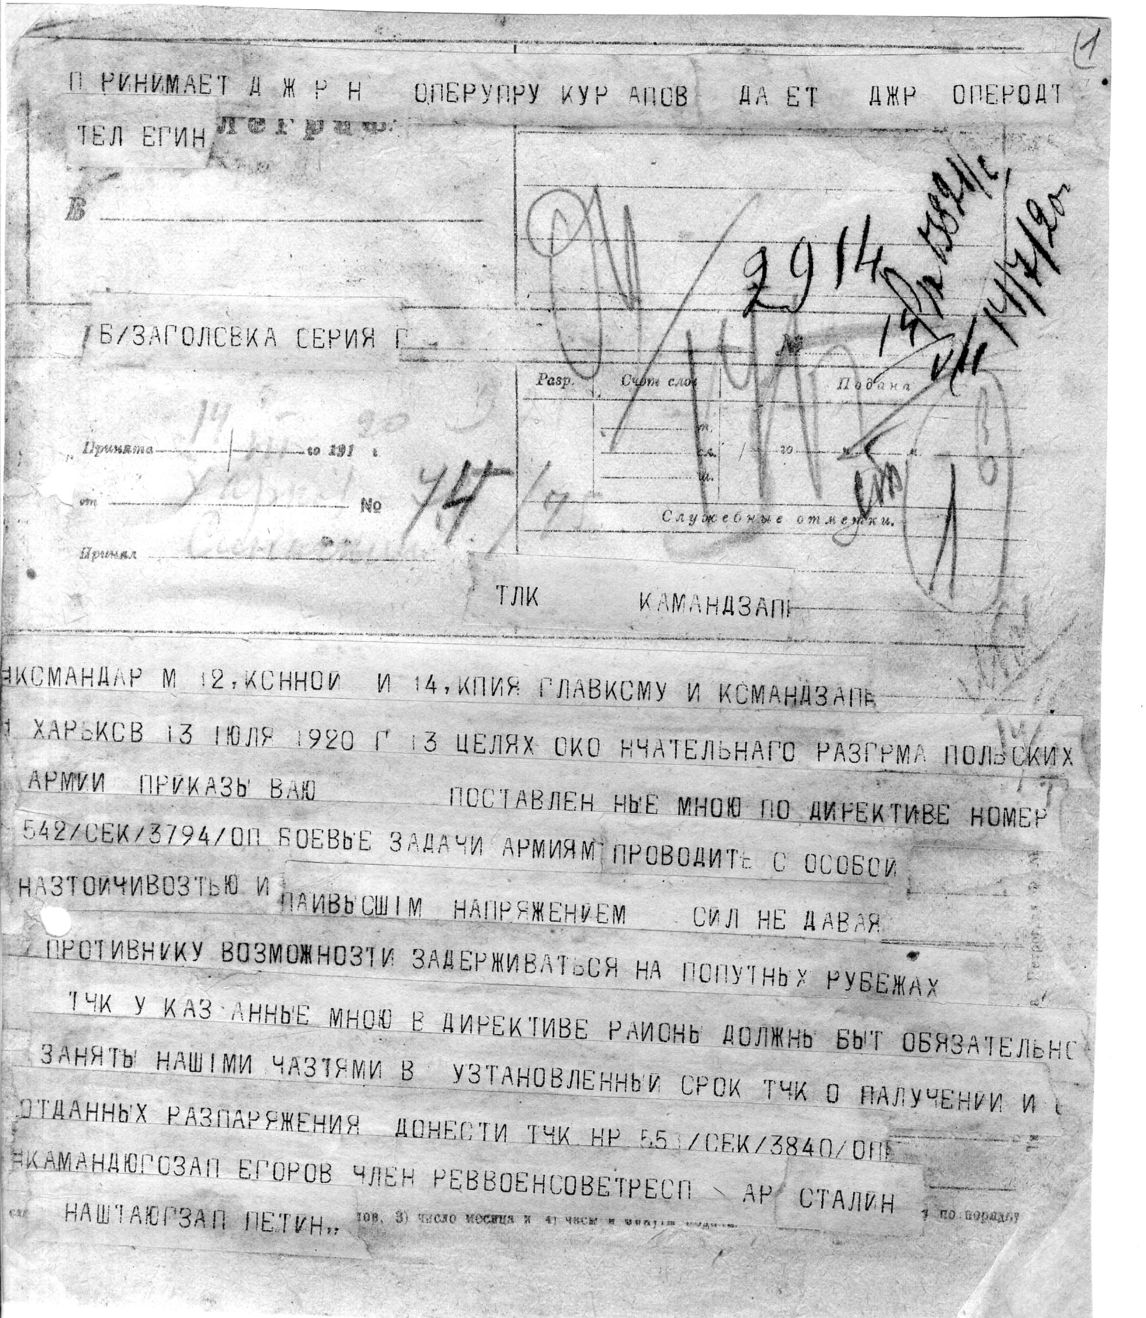 1
П РИНИМАЕТ Д Ж Р Н ОПЕРУПРУ КУР АПОВ ДА ЕТ ДЖР ОПЕРОДТ
ТЕЛ ЕГИН
В
2914
14/7/20
Б/ЗАГОЛСВКА СЕРИЯ Г
Разр. Счет слов Подана
Принята 14 го 191 20 г.
от № 75
Принял
Служебные отметки.
ТЛК КАМАНДЗАП
КСМАНДАР М 12,КСННОЙ И 14,КПИЯ ГЛАВКСМУ И КСМАНДЗАПЕ
ХАРЬКСВ 13 ІЮЛЯ 1920 Г 13 ЦЕЛЯХ ОКО НЧАТЕЛЬНАГО РАЗГРМА ПОЛЬСКИХ
АРМИИ ПРИКАЗЫ ВАЮ ПОСТАВЛЕН НЫЕ МНОЮ ПО ДИРЕКТИВЕ НОМЕР
542/СЕК/3794/ОП БОЕВЫЕ ЗАДАЧИ АРМИЯМ ПРОВОДИТЬ С ОСОБОЙ
НАЗТОЙЧИВОЗТЬЮ И НАИВЫСШІМ НАПРЯЖЕНИЕМ СИЛ НЕ ДАВАЯ
ПРОТИВНИКУ ВОЗМОЖНОЗТИ ЗАДЕРЖИВАТЬСЯ НА ПОПУТНЫХ РУБЕЖАХ
ТЧК У КАЗ АННЫЕ МНОЮ В ДИРЕКТИВЕ РАИОНЫ ДОЛЖНЫ БЫТ ОБЯЗАТЕЛЬНО
ЗАНЯТЫ НАШІМИ ЧАЗТЯМИ В УЗТАНОВЛЕННЫЙ СРОК ТЧК О ПАЛУЧЕНИИ И
ОТДАННЫХ РАЗПАРЯЖЕНИЯ ДОНЕСТИ ТЧК НР 553/СЕК/3840/ОПЕ
КАМАНДЮГОЗАП ЕГОРОВ ЧЛЕН РЕВВОЕНСОВЕТРЕСП АР СТАЛИН
НАШТАЮГЗАП ПЕТИН,, 3) число месяца и 4) часы и по порядку